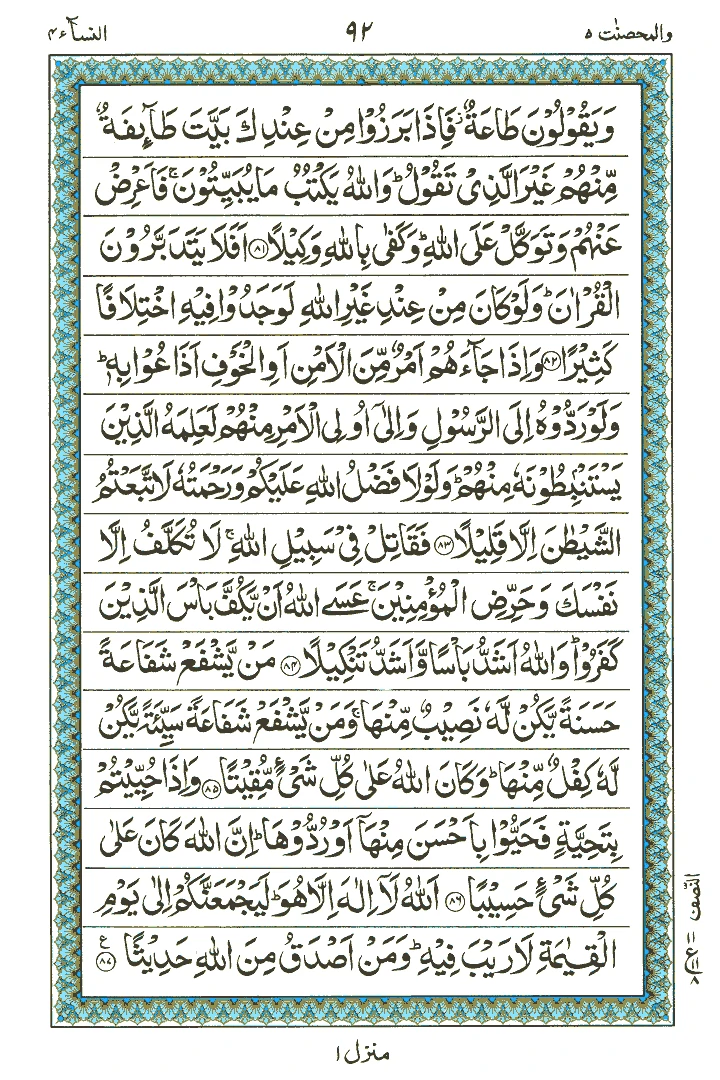 والمحصنت ٥ ٩٢ النسآء ٤
وَيَقُوْلُوْنَ طَاعَةٌ ۫ فَاِذَا بَرَزُوْا مِنْ عِنْدِكَ بَيَّتَ طَآىِٕفَةٌ
مِّنْهُمْ غَيْرَ الَّذِىْ تَقُوْلُ ؕ وَاللّٰهُ يَكْتُبُ مَا يُبَيِّتُوْنَ ۚ فَاَعْرِضْ
عَنْهُمْ وَتَوَكَّلْ عَلَى اللّٰهِ ؕ وَكَفٰى بِاللّٰهِ وَكِيْلًا ﴿٨١﴾ اَفَلَا يَتَدَبَّرُوْنَ
الْقُرْاٰنَ ؕ وَلَوْ كَانَ مِنْ عِنْدِ غَيْرِ اللّٰهِ لَوَجَدُوْا فِيْهِ اخْتِلَافًا
كَثِيْرًا ﴿٨٢﴾ وَاِذَا جَآءَهُمْ اَمْرٌ مِّنَ الْاَمْنِ اَوِ الْخَوْفِ اَذَاعُوْا بِهٖ ؕ
وَلَوْ رَدُّوْهُ اِلَى الرَّسُوْلِ وَاِلٰٓى اُولِى الْاَمْرِ مِنْهُمْ لَعَلِمَهُ الَّذِيْنَ
يَسْتَنْۢبِطُوْنَهٗ مِنْهُمْ ؕ وَلَوْلَا فَضْلُ اللّٰهِ عَلَيْكُمْ وَرَحْمَتُهٗ لَاتَّبَعْتُمُ
الشَّيْطٰنَ اِلَّا قَلِيْلًا ﴿٨٣﴾ فَقَاتِلْ فِىْ سَبِيْلِ اللّٰهِ ۚ لَا تُكَلَّفُ اِلَّا
نَفْسَكَ وَحَرِّضِ الْمُؤْمِنِيْنَ ۚ عَسَى اللّٰهُ اَنْ يَّكُفَّ بَاْسَ الَّذِيْنَ
كَفَرُوْا ؕ وَاللّٰهُ اَشَدُّ بَاْسًا وَّاَشَدُّ تَنْكِيْلًا ﴿٨٤﴾ مَنْ يَّشْفَعْ شَفَاعَةً
حَسَنَةً يَّكُنْ لَّهٗ نَصِيْبٌ مِّنْهَا ۚ وَمَنْ يَّشْفَعْ شَفَاعَةً سَيِّئَةً يَّكُنْ
لَّهٗ كِفْلٌ مِّنْهَا ؕ وَكَانَ اللّٰهُ عَلٰى كُلِّ شَىْءٍ مُّقِيْتًا ﴿٨٥﴾ وَاِذَا حُيِّيْتُمْ
بِتَحِيَّةٍ فَحَيُّوْا بِاَحْسَنَ مِنْهَآ اَوْ رُدُّوْهَا ؕ اِنَّ اللّٰهَ كَانَ عَلٰى
كُلِّ شَىْءٍ حَسِيْبًا ﴿٨٦﴾ اَللّٰهُ لَآ اِلٰهَ اِلَّا هُوَ ؕ لَيَجْمَعَنَّكُمْ اِلٰى يَوْمِ
الْقِيٰمَةِ لَا رَيْبَ فِيْهِ ؕ وَمَنْ اَصْدَقُ مِنَ اللّٰهِ حَدِيْثًا ﴿٨٧﴾ ع
النّصف
ع ١١ ٨
منزل ١